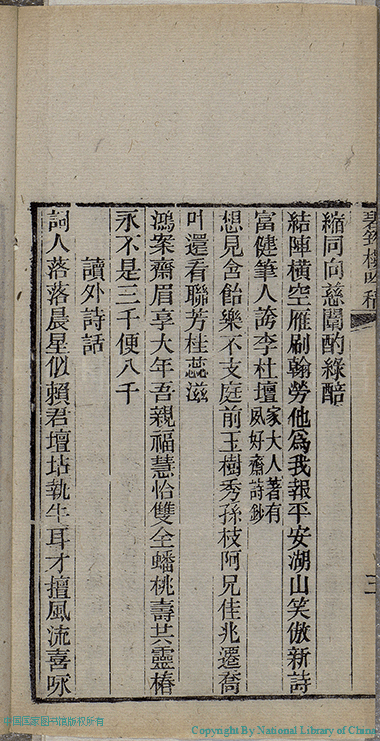 縮同向慈闈酌綠醅
結陣橫空雁刷翰勞他為我報平安湖山笑傲新詩
富健筆人誇李杜壇家大人著有夙好齋詩鈔
想見含飴樂不支庭前玉樹秀孫枝阿兄佳兆遷喬
叶還看聯芳桂蕊滋
鴻案齋眉享大年吾親福慧恰雙全蟠桃壽共靈椿
永不是三千便八千
讀外詩話
詞人落落晨星似賴君壇坫執牛耳才擅風流喜咏
中国国家图书馆版权所有
Copyright By National Library of China